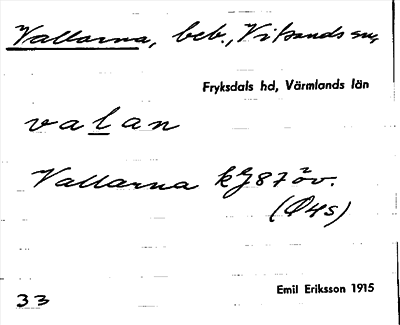 Vallarna, beb., Vitsands sn,
Fryksdals hd, Värmlands län
valan
Vallarna kg 87 öv.
(Ö4s)
33
Emil Eriksson 1915